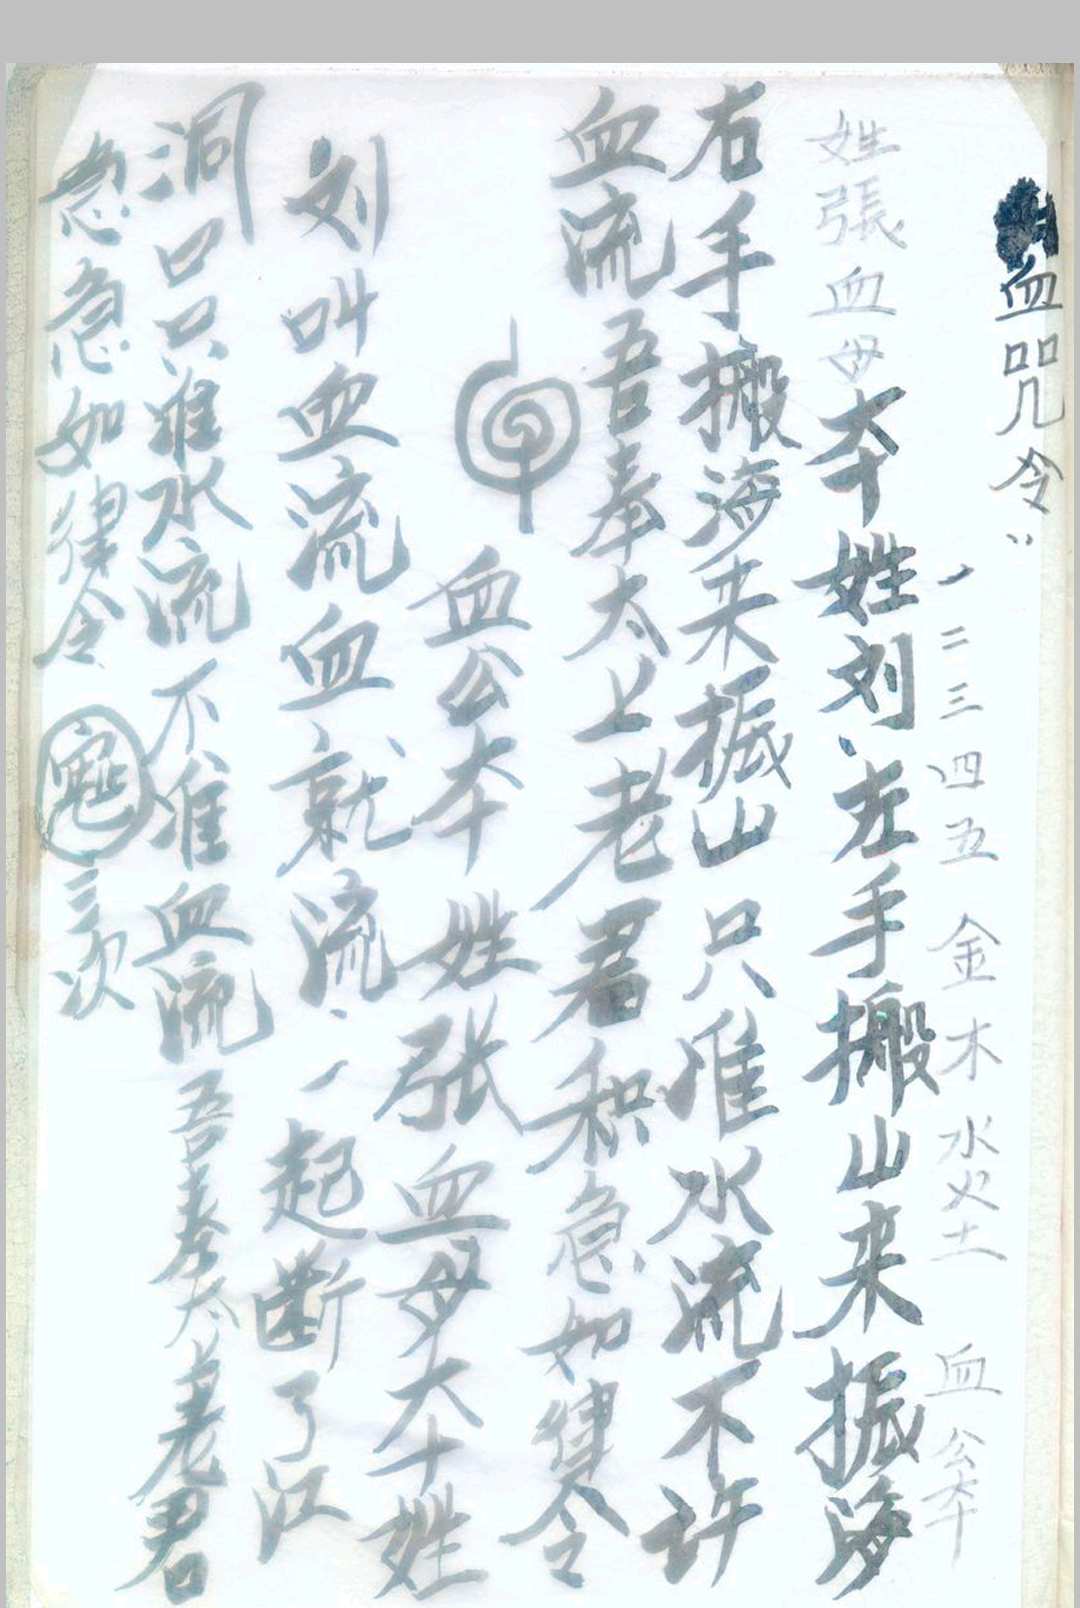 血咒令
一二三四五 金木水火土 血公本
姓張血母本姓刘左手搬山来振海
右手搬海来振山只准水流不许
血流吾奉太上老君和急如律令
血公本姓张血母大十姓
刘叫血流血就流一起断了江
洞口只准水流不准血流吾奉太上老君
急急如律令 三次